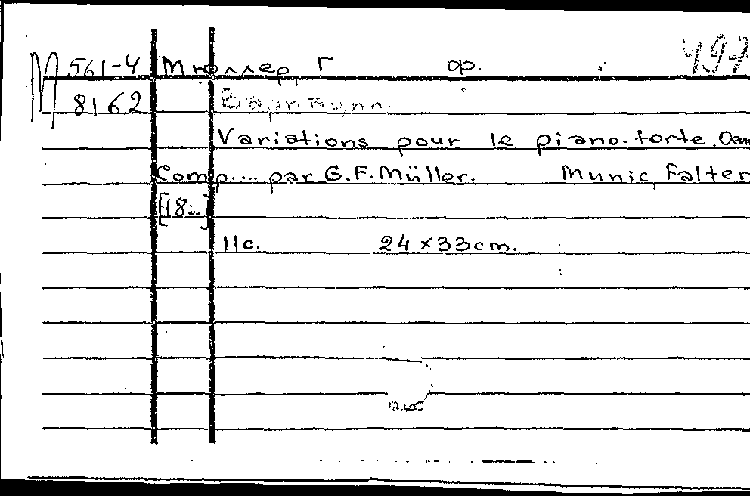 М 561-4 Мюллер, Г ор. 497
8162 Вариации.
Variations pour le piano-forte.
Comp.... par G.F.Müller. Munic, Falter
[18..]
11с. 24×33cm.